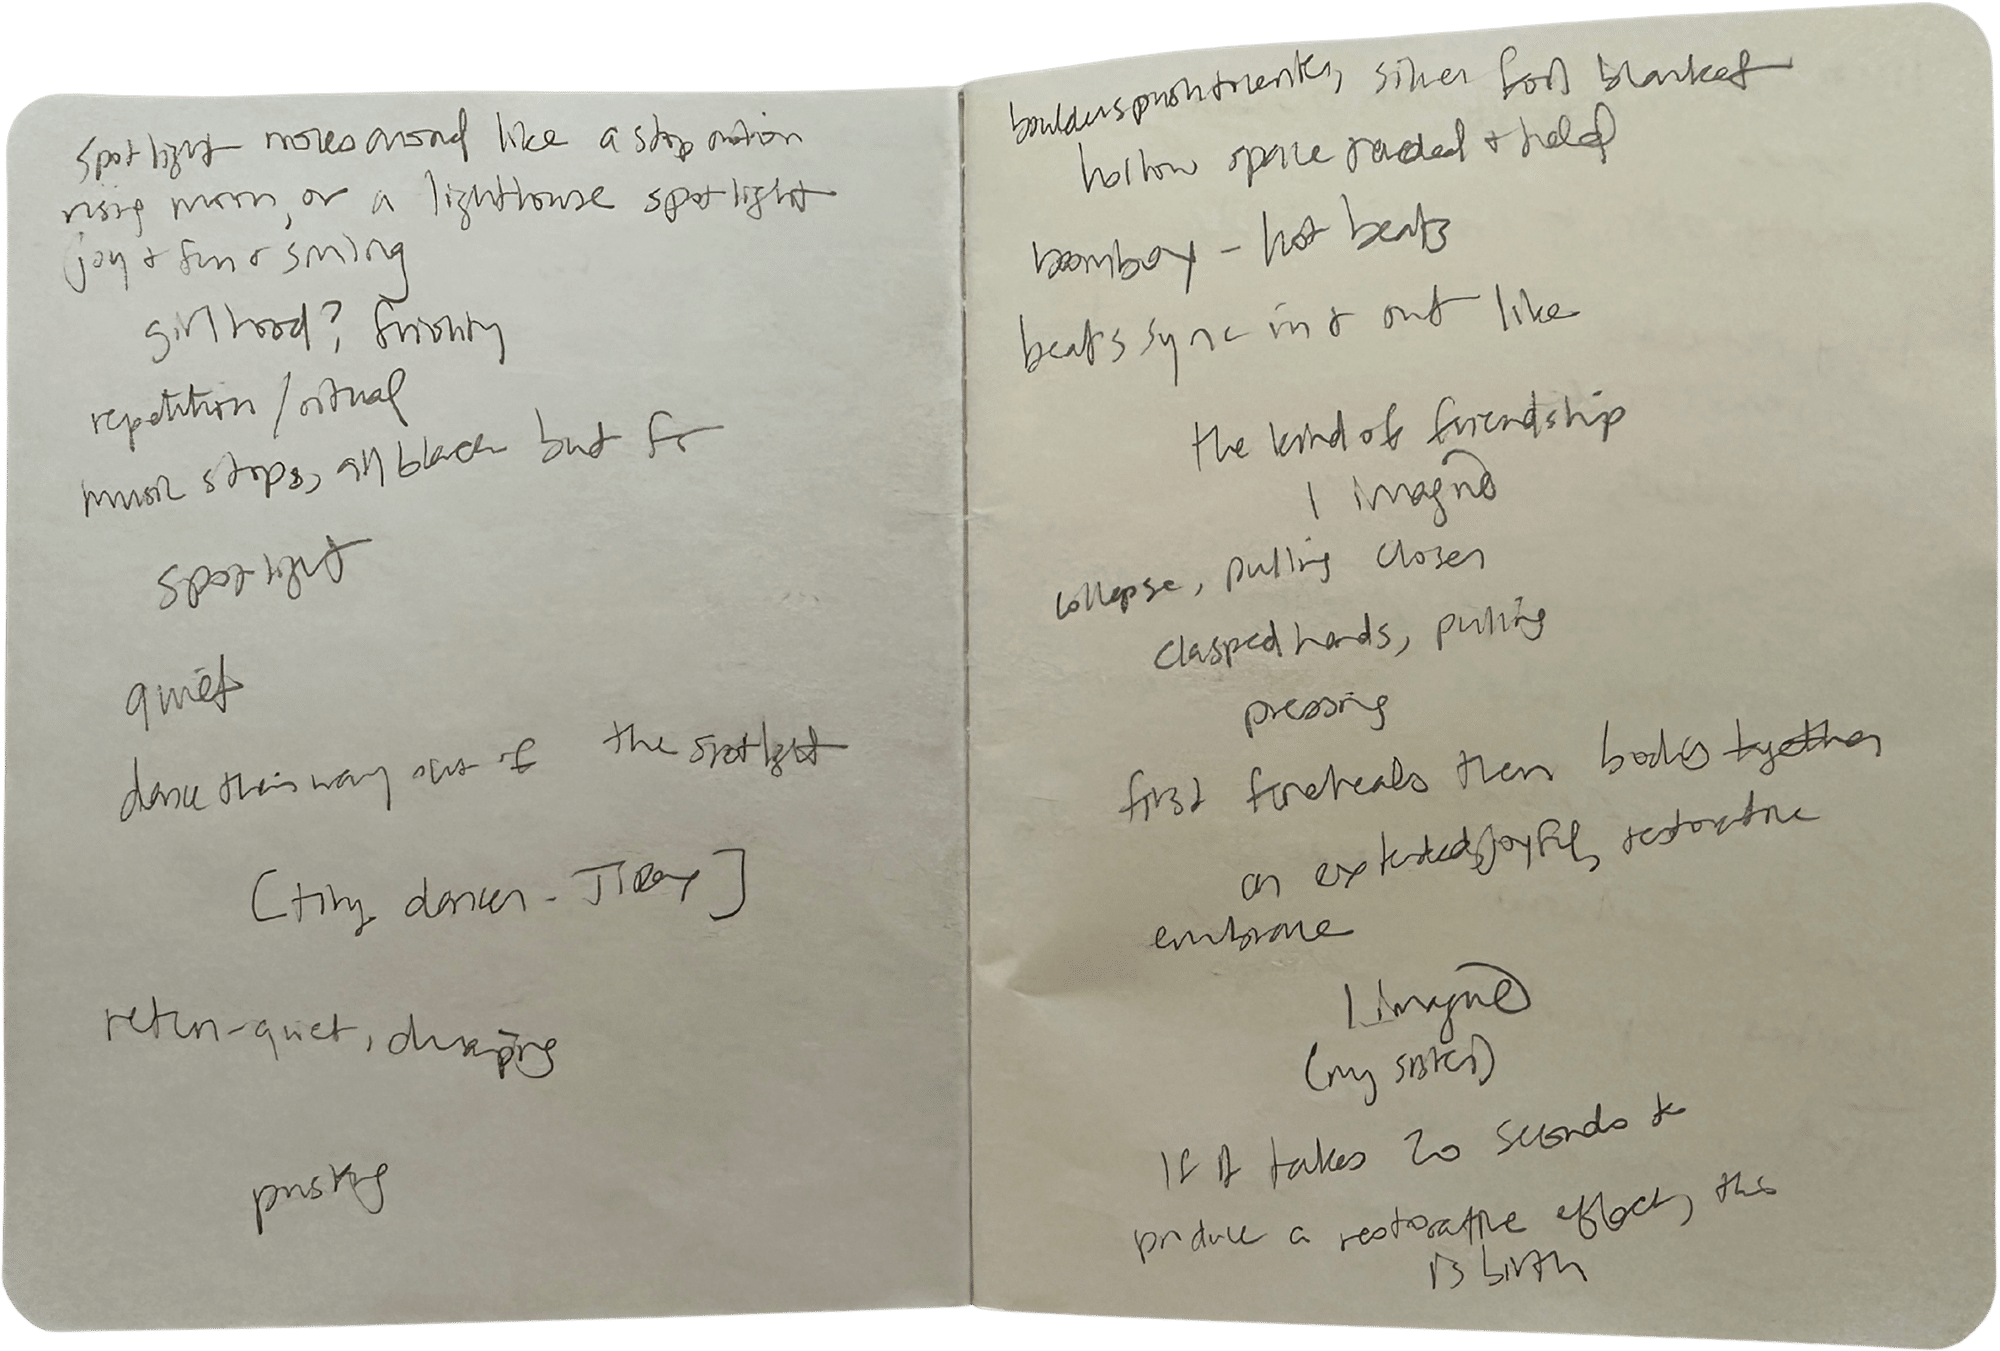 spotlight moves around like a stop motion
rising moon, or a lighthouse spotlight
(joy + fun + smiling
girlhood?
repetition / ritual
music stops, all black but for
spotlight
quiet
dance their way out of the spotlight
[tiny dancer -
return - quiet,
boulders silver foil blanket
hollow space + held
boombox - hot beats
beats sync in + out like
the kind of friendship
I imagine
collapse, pulling closer
clasped hands, pulling
pressing
first foreheads then bodies together
an extended, joyful, restorative
embrace
I imagine
(my sister)
If it takes 20 seconds to
produce a restorative effect, this
is birth